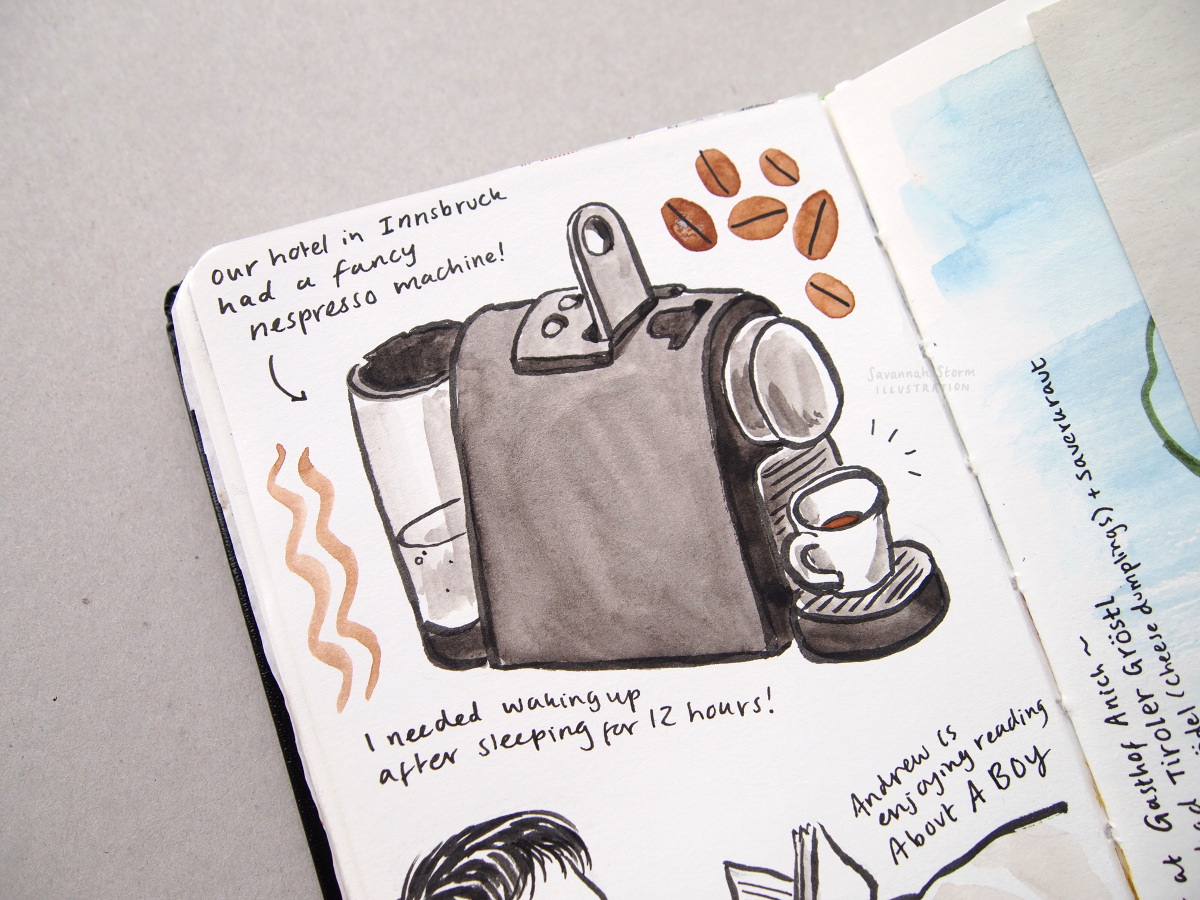 our hotel in Innsbruck
had a fancy
nespresso machine!
Savannah Storm
ILLUSTRATION
I needed waking up
after sleeping for 12 hours!
Andrew is
enjoying reading
About A BOY
at Gasthof Anich ~
Tiroler Gröstl
(cheese dumpling(s) + saverkraut